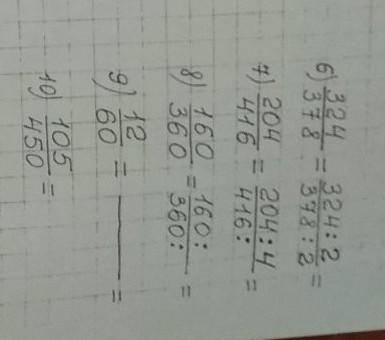 6) 324/378 = 324:2/378:2 =
7) 204/416 = 204:4/416: =
8) 160/360 = 160:/360: =
9) 12/60 = ___ =
10) 105/450 =